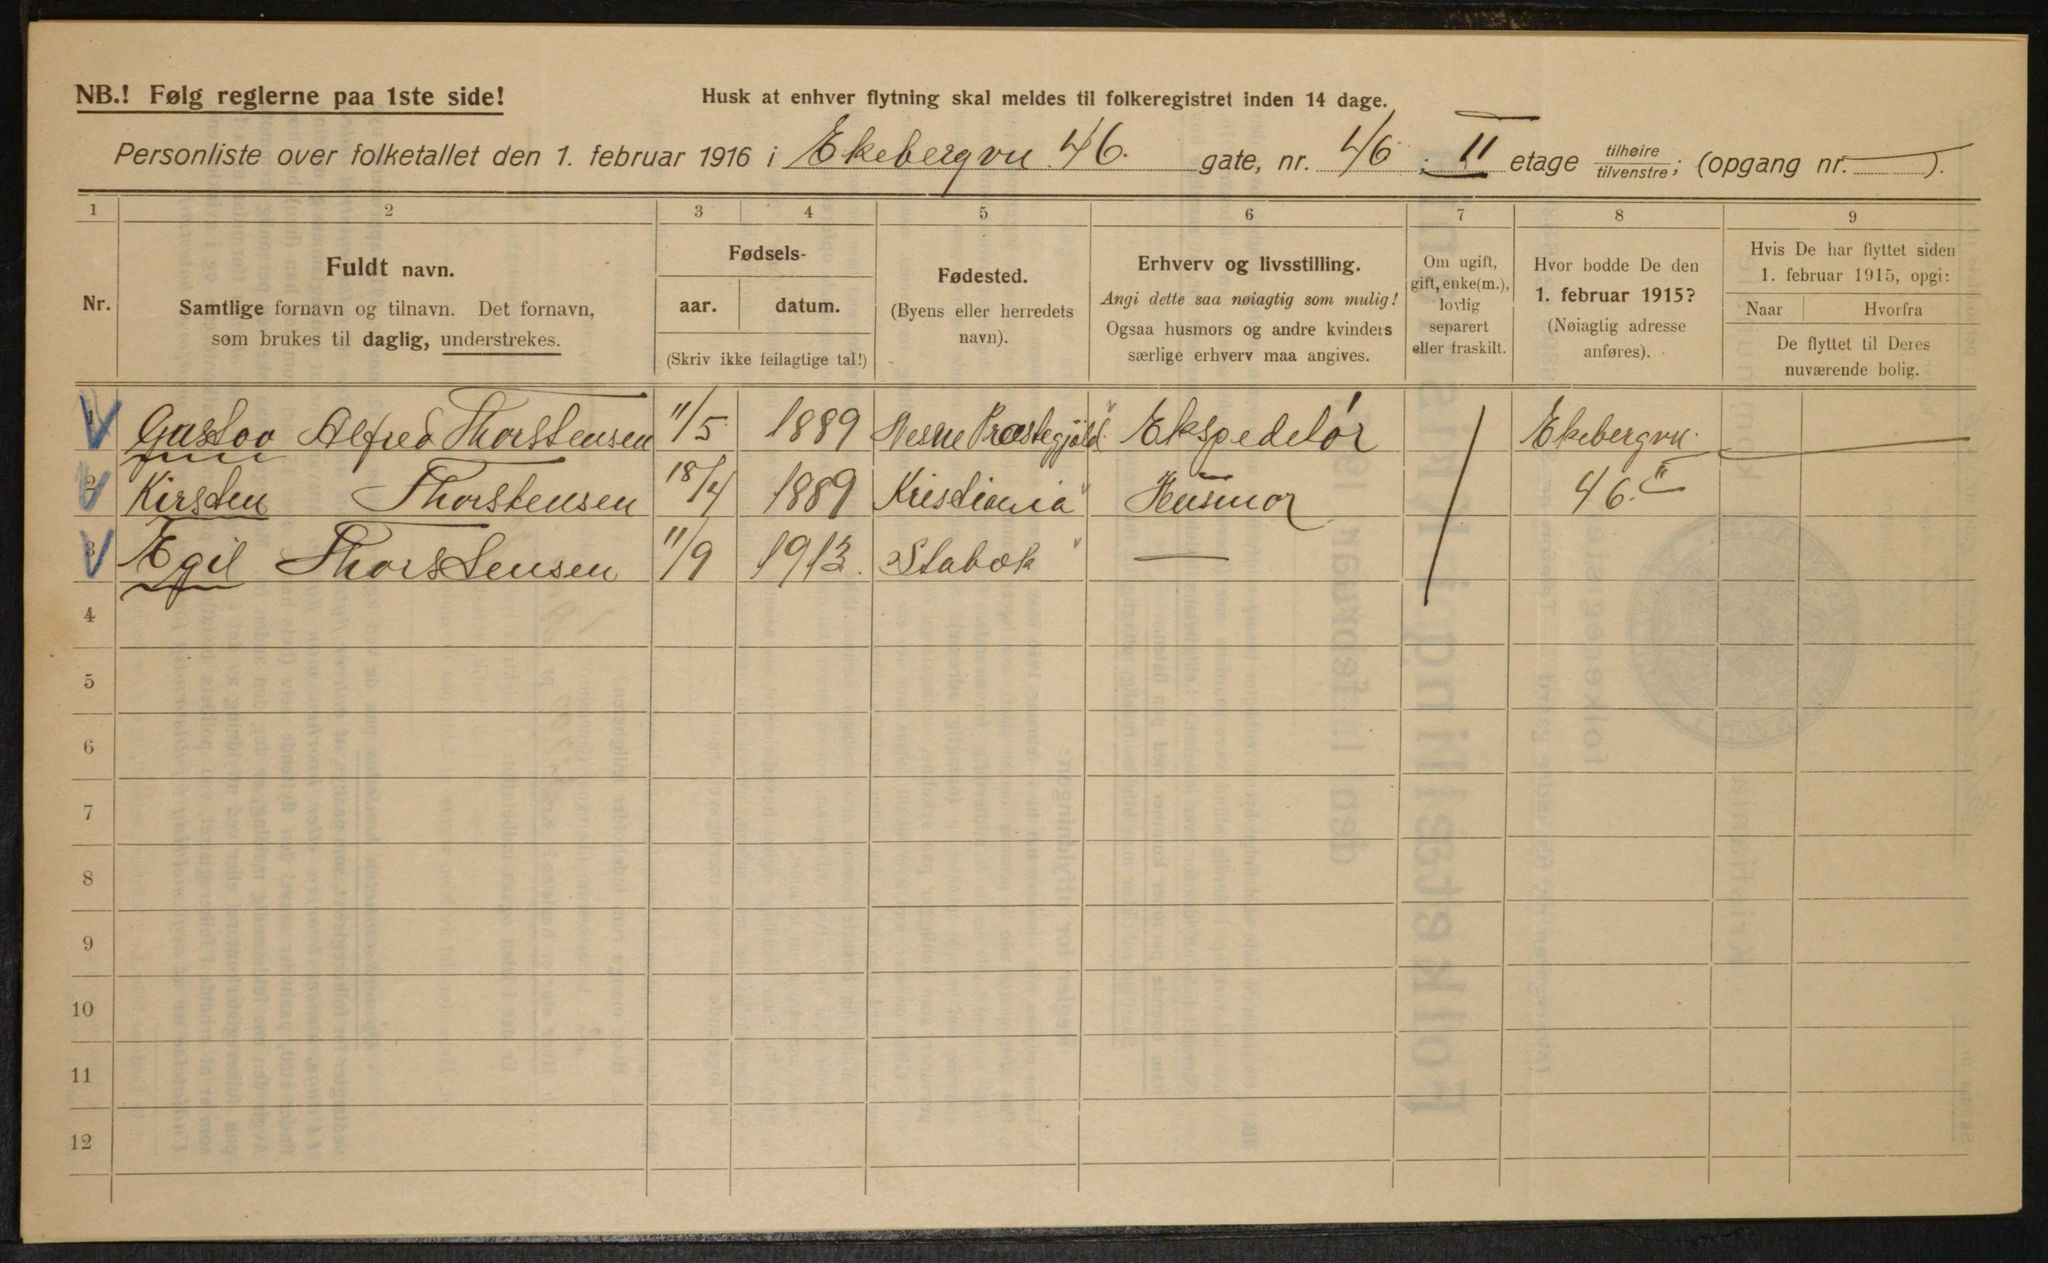 NB.! Følg reglerne paa 1ste side!
Husk at enhver flytning skal meldes til folkeregistret inden 14 dage.
Personliste over folketallet den 1. februar 1916 i Ekebergvn 46. gate, nr. 46 ; II etage tilhøire/tilvenstre; (opgang nr. — ).
1 2 3 4 5 6 7 8 9
Nr.
Fuldt navn.
Samtlige fornavn og tilnavn. Det fornavn,
som brukes til daglig, understrekes.
Fødsels-
aar. datum.
(Skriv ikke feilagtige tal!)
Fødested.
(Byens eller herredets
navn).
Erhverv og livsstilling.
Angi dette saa nøiagtig som mulig!
Ogsaa husmors og andre kvinders
særlige erhverv maa angives.
Om ugift,
gift, enke(m.),
lovlig
separert
eller fraskilt.
Hvor bodde De den
1. februar 1915?
(Nøiagtig adresse
anføres).
Hvis De har flyttet siden
1. februar 1915, opgi:
Naar Hvorfra
De flyttet til Deres
nuværende bolig.
1 Gustav Alfred Thorstensen 11/5 1889 Nesne Præstegjeld Ekspeditør / Ekebergvn. —
2 Kirsten Thorstensen 18/4 1889 Kristiania Husmor 46. II
3 Egil Thorstensen 11/9 1913. Stabæk —
4
5
6
7
8
9
10
11
12